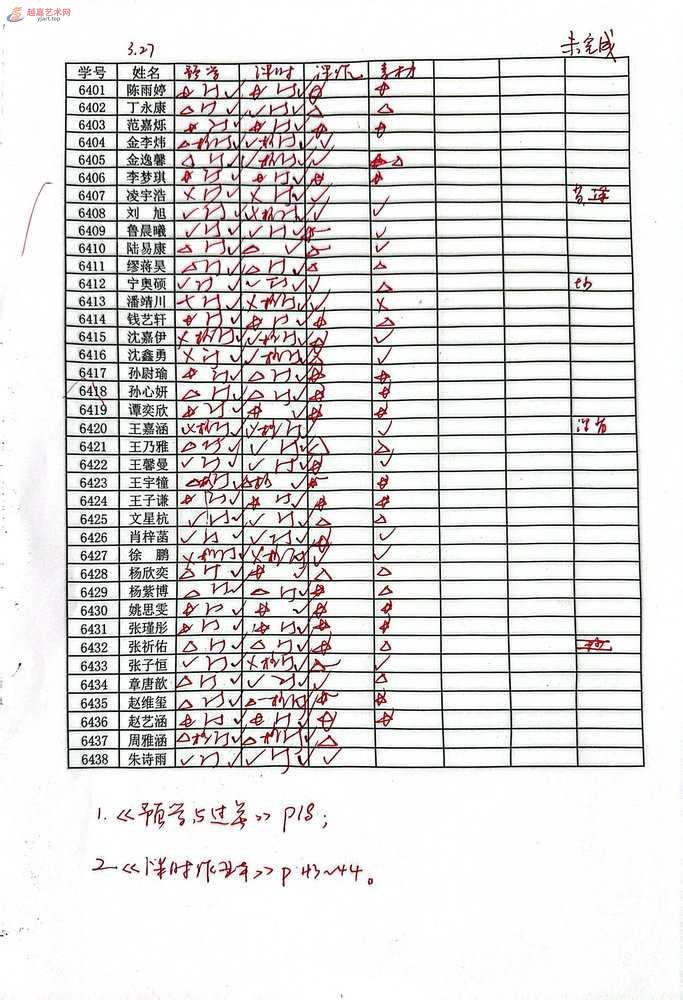 越嘉艺术网
yjart.top
3.27 未完成
学号 姓名 预学 课时 课作 素材
6401 陈雨婷
6402 丁永康
6403 范嘉烁
6404 金李炜
6405 金逸馨
6406 李梦琪
6407 凌宇浩
6408 刘 旭
6409 鲁晨曦
6410 陆易康
6411 缪蒋昊
6412 宁奥硕
6413 潘靖川
6414 钱艺轩
6415 沈嘉伊
6416 沈鑫勇
6417 孙尉瑜
6418 孙心妍
6419 谭奕欣
6420 王嘉涵
6421 王乃雅
6422 王馨曼
6423 王宇犝
6424 王子谦
6425 文星杭
6426 肖梓菡
6427 徐 鹏
6428 杨欣奕
6429 杨紫博
6430 姚思雯
6431 张瑾彤
6432 张祈佑
6433 张子恒
6434 章唐歆
6435 赵维玺
6436 赵艺涵
6437 周雅涵
6438 朱诗雨
1.《预学与过关》P18；
2《课时作业本》P43~44。